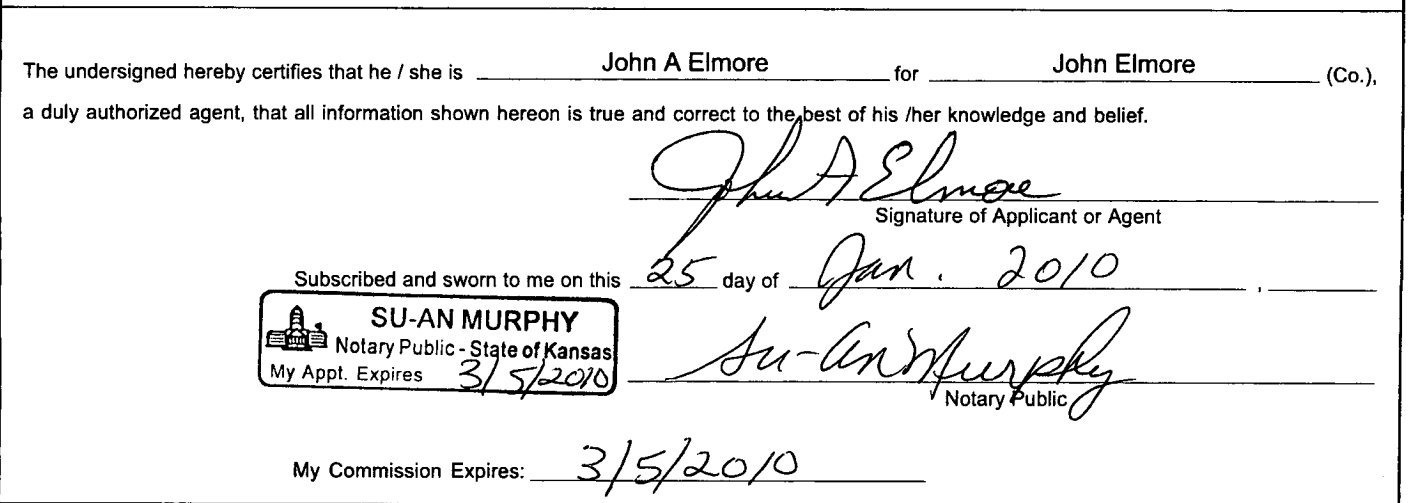 The undersigned hereby certifies that he / she is John A Elmore for John Elmore (Co.),
a duly authorized agent, that all information shown hereon is true and correct to the best of his /her knowledge and belief.
John A Elmore
Signature of Applicant or Agent
Subscribed and sworn to me on this 25 day of Jan. 2010 ,
SU-AN MURPHY
Notary Public - State of Kansas
My Appt. Expires 3/5/2010
Su-An Murphy
Notary Public
My Commission Expires: 3/5/2010